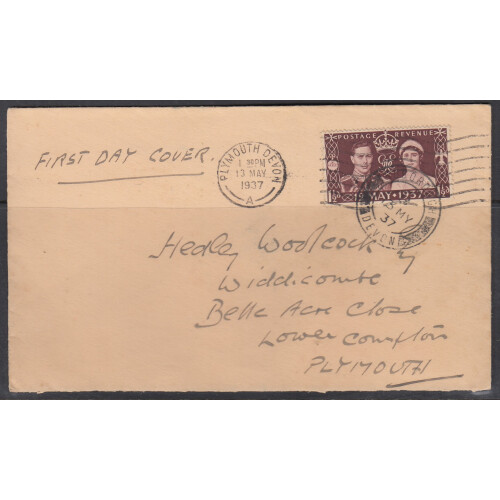 FIRST DAY COVER.
PLYMOUTH DEVON
1 30PM
13 MAY
1937
A
POSTAGE REVENUE
12 MAY 1937
13 MY
37
DEVON
Hedley Woolcock
Widdicombe
Belle Acre Close
Lower Compton
PLYMOUTH